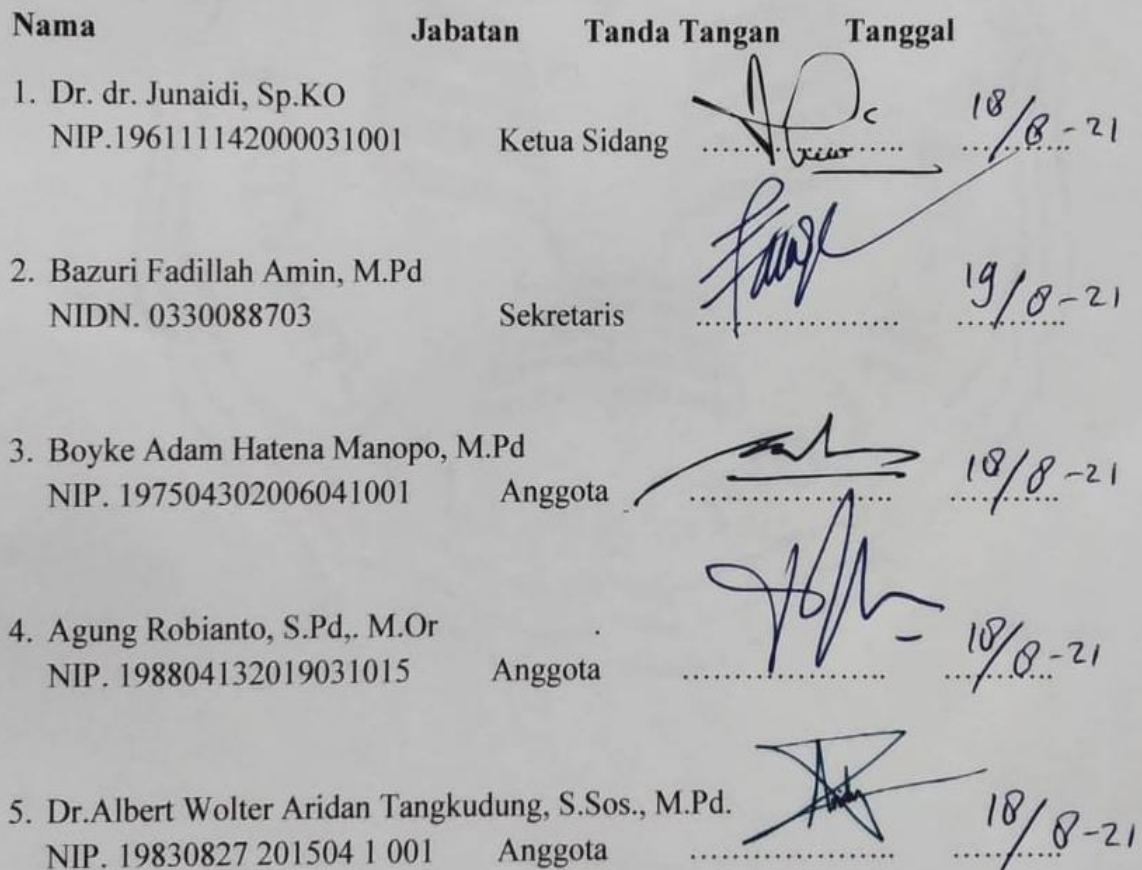 Nama Jabatan Tanda Tangan Tanggal
1. Dr. dr. Junaidi, Sp.KO
NIP.196111142000031001 Ketua Sidang .................... 18/8-21
2. Bazuri Fadillah Amin, M.Pd
NIDN. 0330088703 Sekretaris .................... 19/8-21
3. Boyke Adam Hatena Manopo, M.Pd
NIP. 197504302006041001 Anggota .................... 18/8-21
4. Agung Robianto, S.Pd,. M.Or
NIP. 198804132019031015 Anggota .................... 18/8-21
5. Dr.Albert Wolter Aridan Tangkudung, S.Sos., M.Pd.
NIP. 19830827 201504 1 001 Anggota .................... 18/8-21